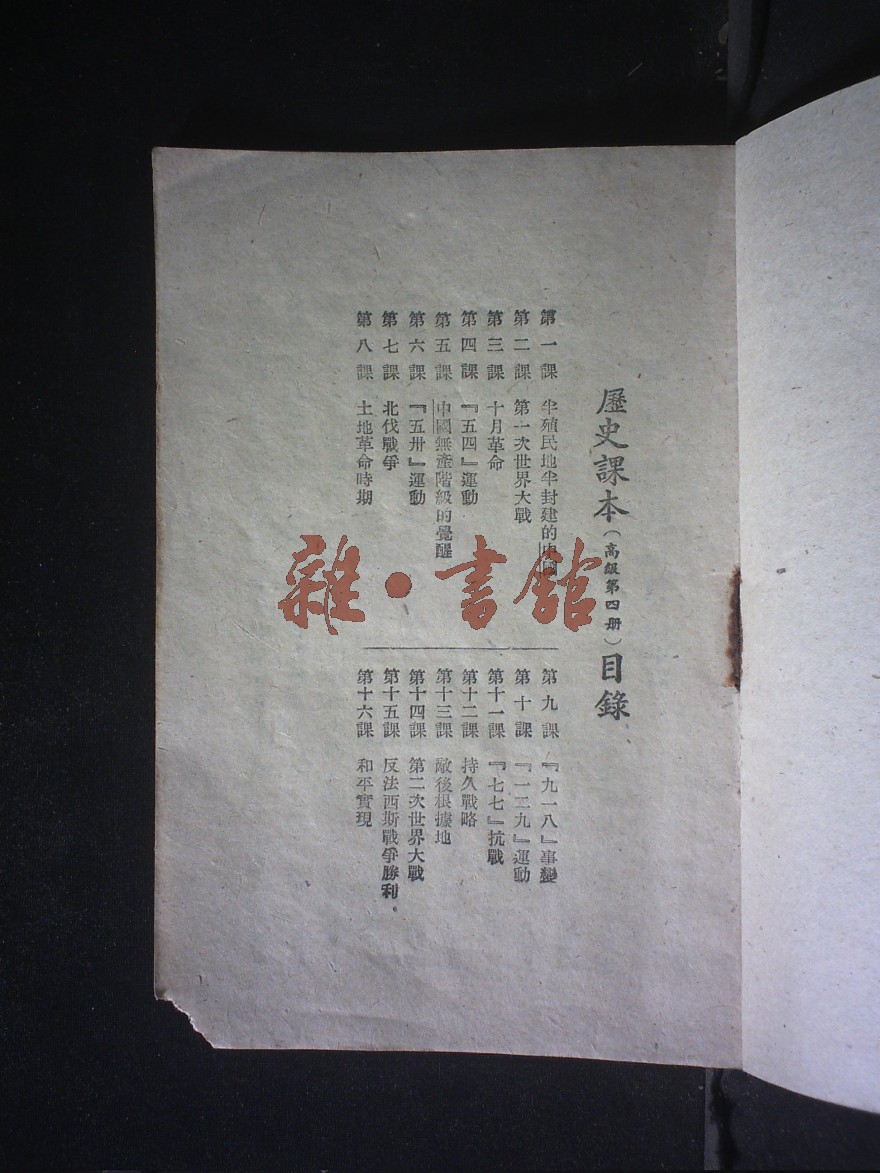 歷史課本（高級第四册）目錄
第一課 半殖民地半封建的中國
第二課 第一次世界大戰
第三課 十月革命
第四課 『五四』運動
第五課 中國無產階級的覺醒
第六課 『五卅』運動
第七課 北伐戰爭
第八課 土地革命時期
第九課 『九一八』事變
第十課 『一二九』運動
第十一課 『七七』抗戰
第十二課 持久戰略
第十三課 敵後根據地
第十四課 第二次世界大戰
第十五課 反法西斯戰爭勝利．
第十六課 和平實現
雜·書館